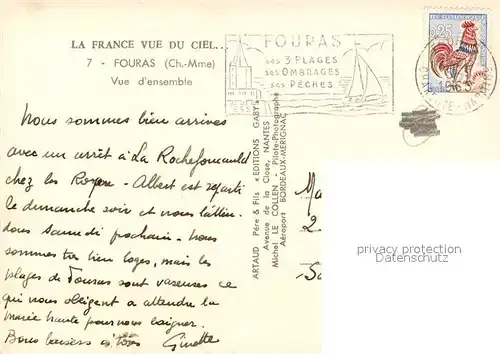 LA FRANCE VUE DU CIEL...
7 - FOURAS (Ch.-Mme)
Vue d'ensemble
FOURAS
SES 3 PLAGES
SES OMBRAGES
SES PÊCHES
0,25
Nous sommes bien arrives
avec un arrêt à La Rochefoucauld
chez les Albert est reparti
le dimanche soir et nous l'atten
dons samedi prochain - nous
sommes très bien loges, mais les
plages de Fouras sont vaseuses ce
qui nous obligent a attendre la
marée haute pour nous baigner.
Bons baisers à tous Ginette
ARTAUD Père & Fils « EDITIONS GABY »
Avenue de la Close, NANTES
Michel LE COLLEN Pilote-Photographe
Aéroport BORDEAUX-MERIGNAC
privacy protection
Datenschutz